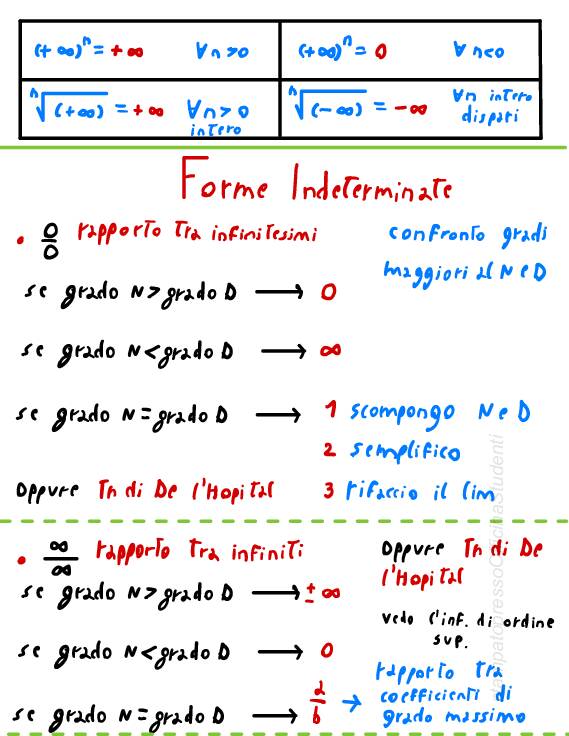 (+∞)ⁿ = +∞ ∀n>0 (+∞)ⁿ = 0 ∀n<0
ⁿ√(+∞) = +∞ ∀n>0 intero ⁿ√(-∞) = -∞ ∀n intero dispari
Forme Indeterminate
• 0/0 rapporto tra infinitesimi
confronto gradi
maggiori al N e D
se grado N > grado D → 0
se grado N < grado D → ∞
se grado N = grado D → 1 scompongo N e D
2 semplifico
oppure Th di De l'Hopital 3 rifaccio il lim
• ∞/∞ rapporto tra infiniti
oppure Th di De
l'Hopital
se grado N > grado D → ± ∞
vedo l'inf. di ordine
sup.
se grado N < grado D → 0
se grado N = grado D → a/b → rapporto tra
coefficienti di
grado massimo